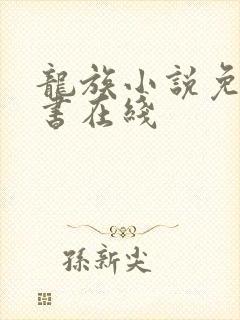 龍族小説免
書在綫
孫新尖